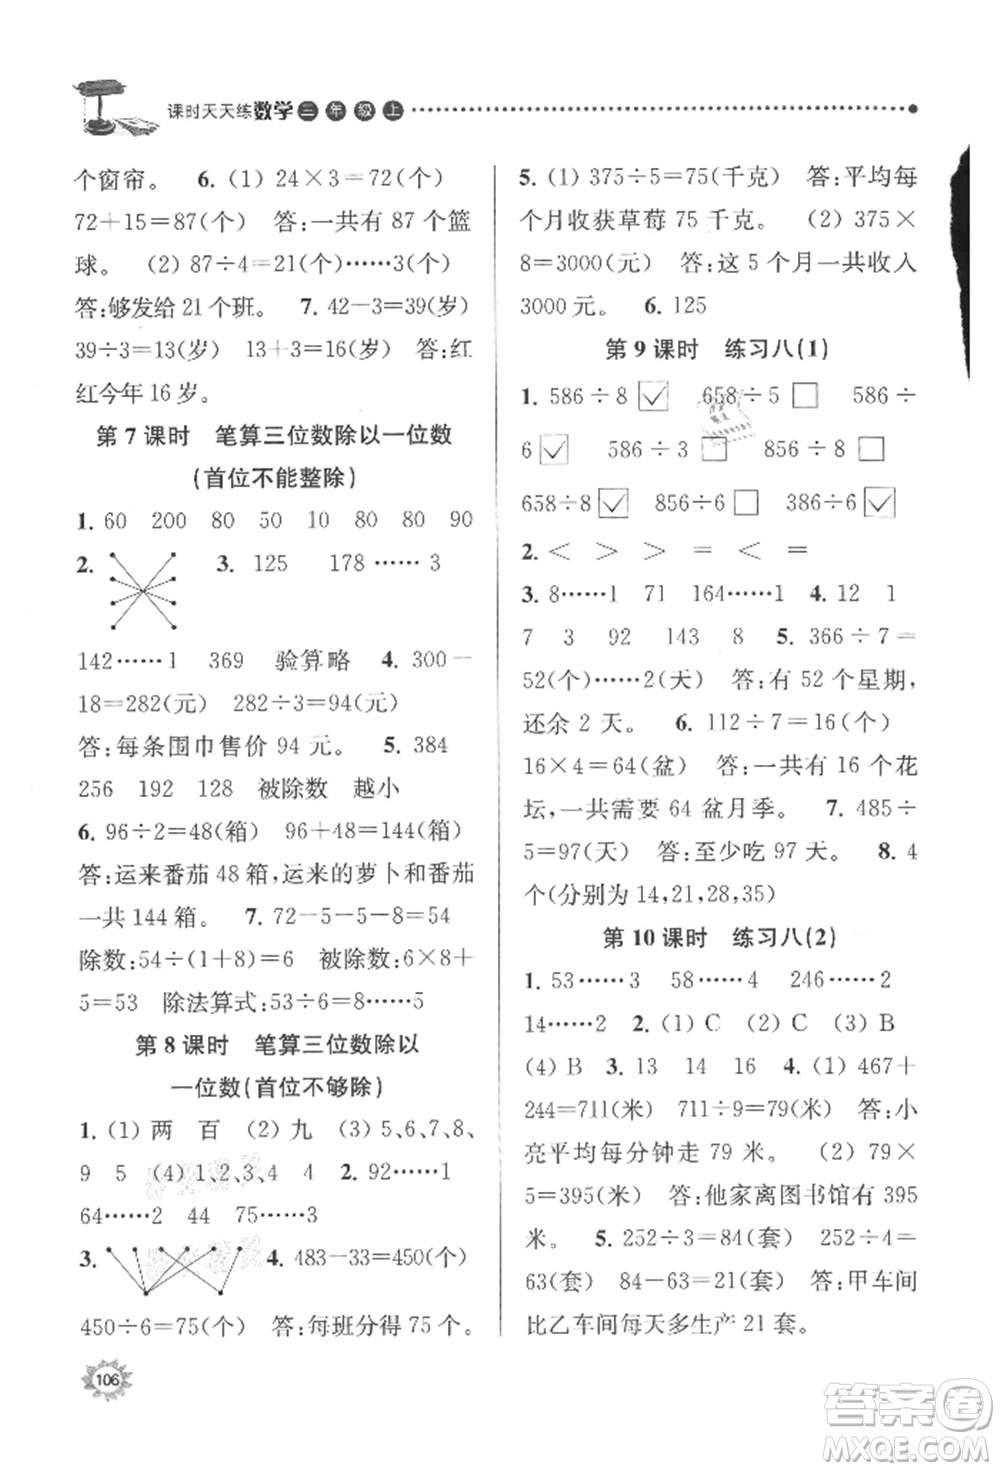 课时天天练数学三年级上
个窗帘。 6. (1) 24×3=72(个)
72+15=87(个) 答:一共有 87 个篮
球。 (2) 87÷4=21(个)……3(个)
答:够发给 21 个班。 7. 42-3=39(岁)
39÷3=13(岁) 13+3=16(岁) 答:红
红今年 16 岁。
第 7 课时 笔算三位数除以一位数
(首位不能整除)
1. 60 200 80 50 10 80 80 90
2. 3. 125 178……3
142……1 369 验算略 4. 300-
18=282(元) 282÷3=94(元)
答:每条围巾售价 94 元。 5. 384
256 192 128 被除数 越小
6. 96÷2=48(箱) 96+48=144(箱)
答:运来番茄 48 箱,运来的萝卜和番茄
一共 144 箱。 7. 72-5-5-8=54
除数:54÷(1+8)=6 被除数:6×8+
5=53 除法算式:53÷6=8……5
第 8 课时 笔算三位数除以
一位数(首位不够除)
1. (1) 两 百 (2) 九 (3) 5、6、7、8、
9 5 (4)1、2、3、4 4 2. 92……1
64……2 44 75……3
3. 4. 483-33=450(个)
450÷6=75(个) 答:每班分得 75 个。
106
5. (1) 375÷5=75(千克) 答:平均每
个月收获草莓 75 千克。 (2) 375×
8=3000(元) 答:这 5 个月一共收入
3000 元。 6. 125
第 9 课时 练习八(1)
1. 586÷8 ✓ 658÷5 □ 586÷
6 ✓ 586÷3 □ 856÷8 □
658÷8 ✓ 856÷6 □ 386÷6 ✓
2. < > > = < =
3. 8……1 71 164……1 4. 12 1
7 3 92 143 8 5. 366÷7=
52(个)……2(天) 答:有 52 个星期,
还余 2 天。 6. 112÷7=16(个)
16×4=64(盆) 答:一共有 16 个花
坛,一共需要 64 盆月季。 7. 485÷
5=97(天) 答:至少吃 97 天。 8. 4
个(分别为 14,21,28,35)
第 10 课时 练习八(2)
1. 53……3 58……4 246……2
14……2 2. (1) C (2) C (3) B
(4) B 3. 8 7 2 4. (1) 467+
244=711(米) 711÷9=79(米) 答:小
亮平均每分钟走 79 米。 (2) 79×
5=395(米) 答:他家离图书馆有 395
米。 5. 252÷3=84(套) 252÷4=
63(套) 84-63=21(套) 答:甲车间
比乙车间每天多生产 21 套。
答案圈
MXQE.COM